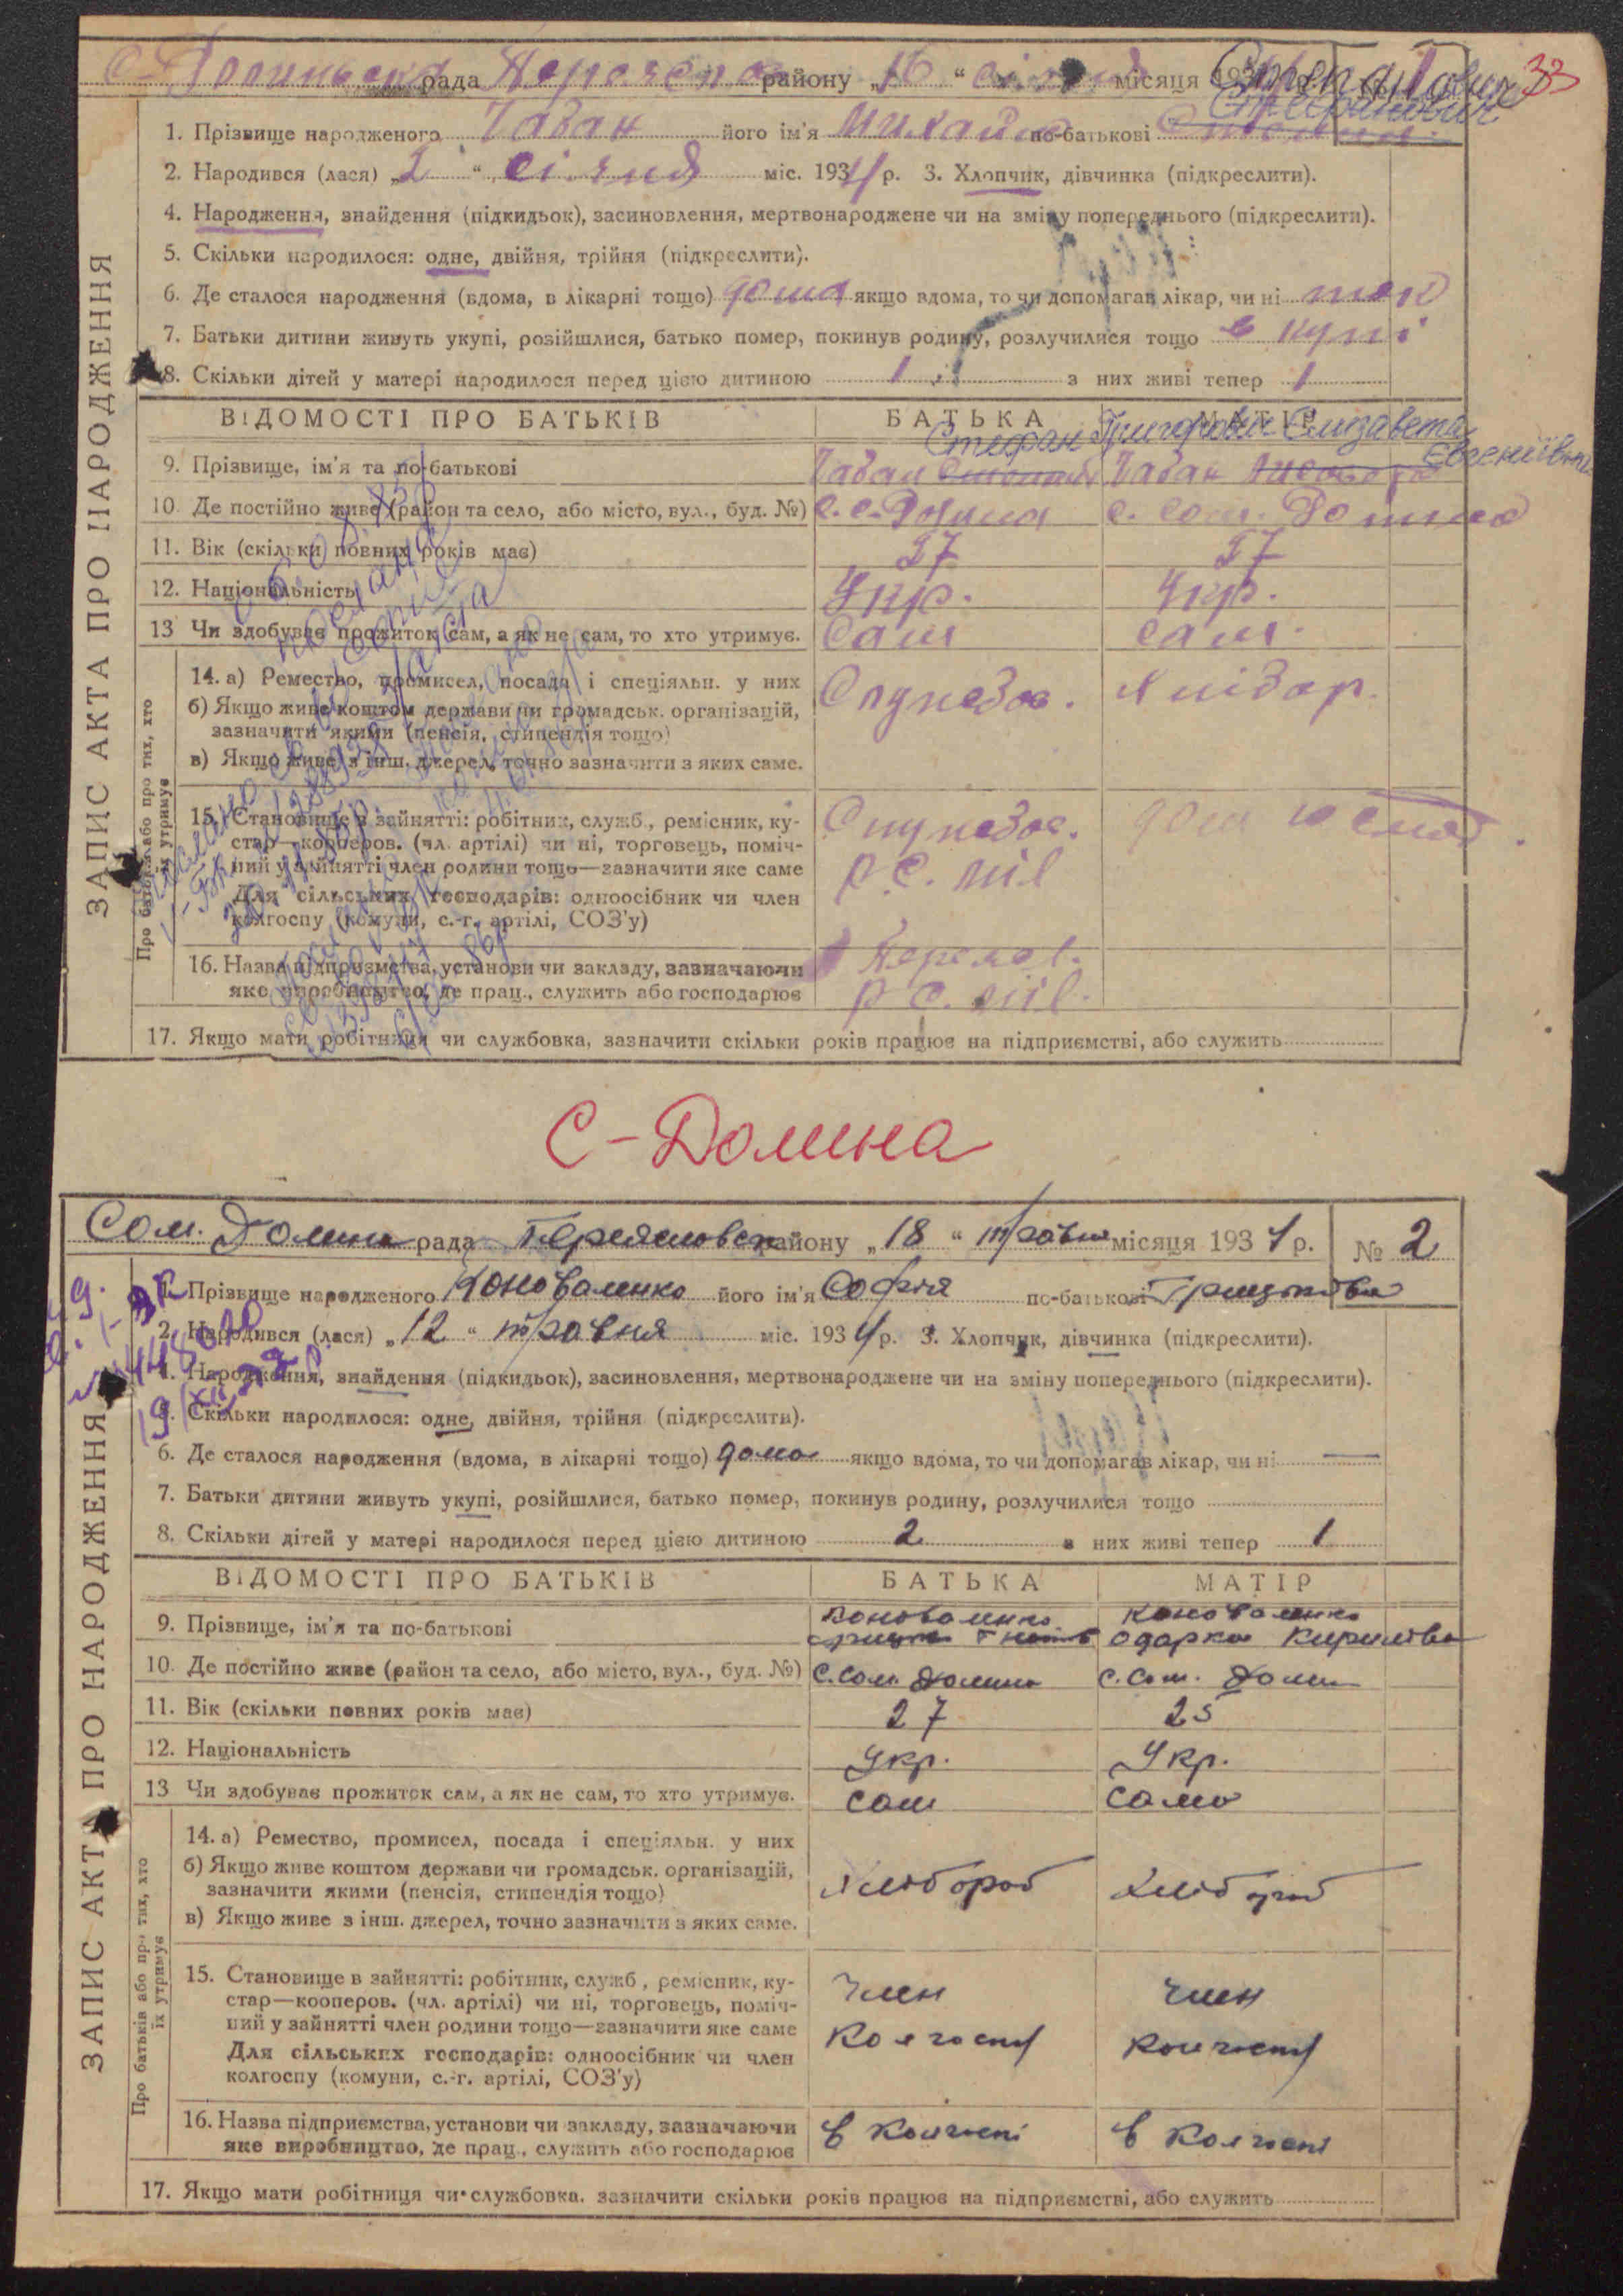 33
рада району „16“ місяця 193
1. Прізвище народженого Чабан його ім'я Михайло по-батькові
2. Народився (лася) „2“ січня міс. 1934 р. 3. Хлопчик, дівчинка (підкреслити).
4. Народження, знайдення (підкидьок), засиновлення, мертвонароджене чи на зміну попереднього (підкреслити).
5. Скільки народилося: одне, двійня, трійня (підкреслити).
6. Де сталося народження (вдома, в лікарні тощо) дома якщо вдома, то чи допомагав лікар, чи ні так
7. Батьки дитини живуть укупі, розійшлися, батько помер, покинув родину, розлучилися тощо в купі
8. Скільки дітей у матері народилося перед цією дитиною 1 з них живі тепер 1
ЗАПИС АКТА ПРО НАРОДЖЕННЯ
ВІДОМОСТІ ПРО БАТЬКІВ БАТЬКА МАТІР
Стефан Григорович Єлизавета
Євгеніївна
9. Прізвище, ім'я та по-батькові Чабан Чабан
10. Де постійно живе (район та село, або місто, вул., буд. №) с. с. Долина с. Сом. Долина
11. Вік (скільки повних років має) 27 27
12. Національність Укр. Укр.
13 Чи здобуває прожиток сам, а як не сам, то хто утримує. Сам сам.
Про батьків або про тих, хто їх утримує
14. а) Ремество, промисел, посада і спеціяльн. у них
б) Якщо живе коштом держави чи громадськ. організацій,
зазначити якими (пенсія, стипендія тощо)
в) Якщо живе з інш. джерел, точно зазначити з яких саме.
15. Становище в зайнятті: робітник, служб., ремісник, ку-
стар—кооперов. (чл. артілі) чи ні, торговець, поміч-
ний у зайнятті член родини тощо—зазначити яке саме
Для сільських господарів: одноосібник чи член
колгоспу (комуни, с.-г. артілі, СОЗ'у)
16. Назва підприємства, установи чи закладу, зазначаючи
яке виробництво, де прац., служить або господарює
17. Якщо мати робітниця чи службовка, зазначити скільки років працює на підприємстві, або служить
С-Долина
Сом. Долина рада району „18“ травня місяця 1934 р. № 2
1. Прізвище народженого Коноваленко його ім'я Софія по-батькові
2. Народився (лася) „12“ травня міс. 1934 р. 3. Хлопчик, дівчинка (підкреслити).
4. Народження, знайдення (підкидьок), засиновлення, мертвонароджене чи на зміну попереднього (підкреслити).
5. Скільки народилося: одне, двійня, трійня (підкреслити).
6. Де сталося народження (вдома, в лікарні тощо) дома якщо вдома, то чи допомагав лікар, чи ні —
7. Батьки дитини живуть укупі, розійшлися, батько помер, покинув родину, розлучилися тощо
8. Скільки дітей у матері народилося перед цією дитиною 2 з них живі тепер 1
ЗАПИС АКТА ПРО НАРОДЖЕННЯ
ВІДОМОСТІ ПРО БАТЬКІВ БАТЬКА МАТІР
Коноваленко Коноваленко
9. Прізвище, ім'я та по-батькові Одарка Кирилівна
10. Де постійно живе (район та село, або місто, вул., буд. №) С. Сом. Долина С. Сом. Долин
11. Вік (скільки повних років має) 27 25
12. Національність Укр. Укр.
13 Чи здобуває прожиток сам, а як не сам, то хто утримує. сам сама
Про батьків або про тих, хто їх утримує
14. а) Ремество, промисел, посада і спеціяльн. у них
б) Якщо живе коштом держави чи громадськ. організацій, Хлібороб Хлібороб
зазначити якими (пенсія, стипендія тощо)
в) Якщо живе з інш. джерел, точно зазначити з яких саме.
15. Становище в зайнятті: робітник, служб., ремісник, ку- Член член
стар—кооперов. (чл. артілі) чи ні, торговець, поміч-
ний у зайнятті член родини тощо—зазначити яке саме Колгоспу Колгоспу
Для сільських господарів: одноосібник чи член
колгоспу (комуни, с.-г. артілі, СОЗ'у)
16. Назва підприємства, установи чи закладу, зазначаючи В Колгоспі В Колгоспі
яке виробництво, де прац., служить або господарює
17. Якщо мати робітниця чи службовка, зазначити скільки років працює на підприємстві, або служить